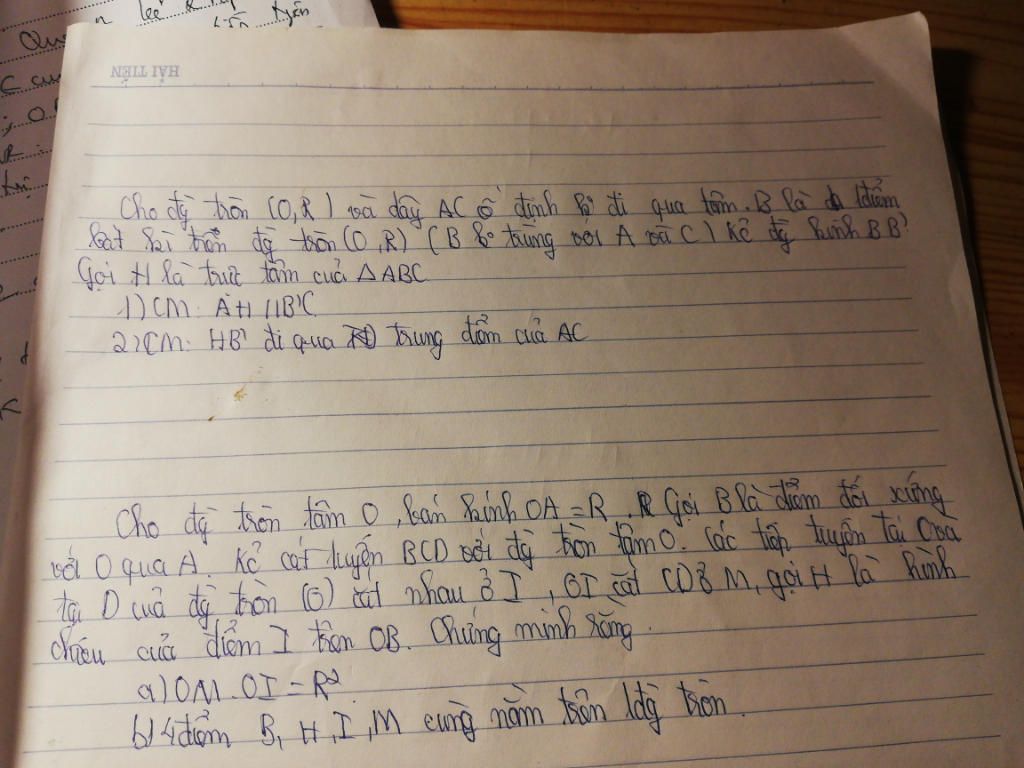 HẢI TIẾN
Cho đg tròn (O,R) và dây AC cố định ko đi qua tâm. B là 1 điểm
bất kì trên đg tròn (O,R) (B ko trùng với A và C) Kẻ đg kính BB'
Gọi H là trực tâm của △ABC
1) CM: AH // B'C
2) CM: HB' đi qua trung điểm của AC
Cho đg tròn tâm O, bán kính OA = R. Gọi B là điểm đối xứng
với O qua A. Kẻ cát tuyến BCD với đg tròn tâm O. Các tiếp tuyến tại C và
tại D của đg tròn (O) cắt nhau ở I, OI cắt CD ở M, gọi H là hình
chiếu của điểm I trên OB. Chứng minh rằng.
a) OM.OI = R²
b) 4 điểm B, H, I, M cùng nằm trên 1 đg tròn.